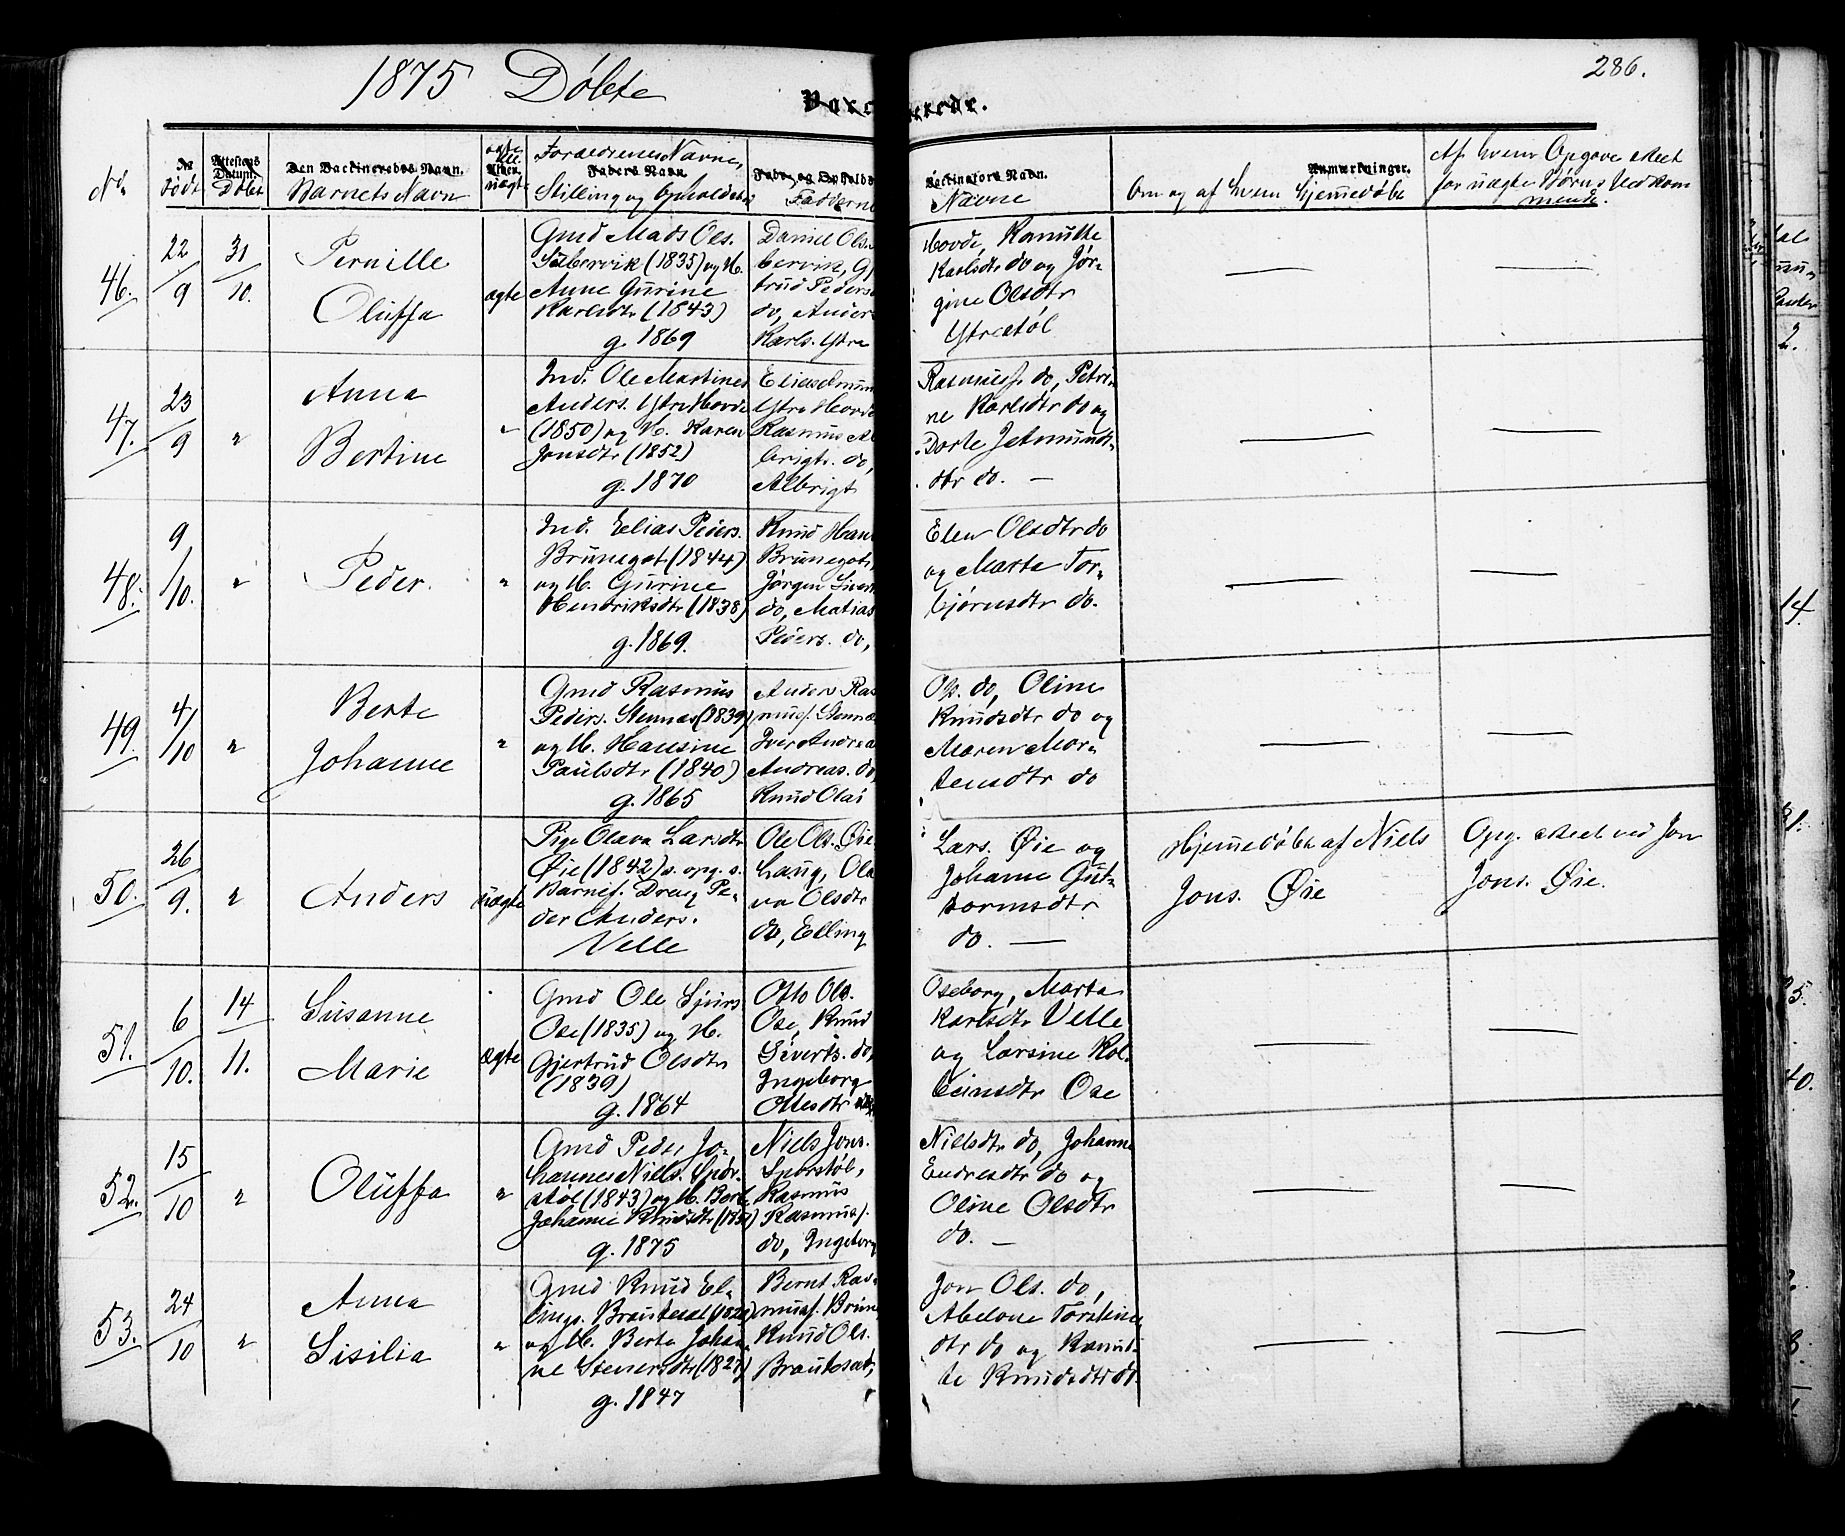 1875 Døbte
286.
No
født
Døbt
Barnets Navn
Forældrenes Navne,
Stilling og Opholdsted
Faddernes
Navne
Om og af hvem hjemmedøbt
Af hvem Opgave skeet
for uægte Børns Vedkom
mende.
Den Vaccineredes Navn.
Faders Navn
Vaccinators Navn.
Anmærkninger.
46.
22/9
31/10.
Pernille
Oluffa
ægte
Gmd Mads Ols.
Sæbervik (1835) og H.
Anne Gurine
Karlsdtr (1843)
g. 1869
Daniel Ols.
bervik,
trud Peders
do, Anders
Karls. Ytre
Hovde, Knudtte
Karlsdtr do og Jør-
gine Olsdtr
Ytrestøl
47.
23/9
"
Anna
Bertine
"
Ind. Ole Martines
Anders. Ytre Hovde
(1850) og H. Karen
Jonsdtr (1852)
g. 1870
Ytre Hovde
Rasmus Al
brigts. do,
Albrigt
Rasmuss. do, Petri-
ne Karlsdtr do og
Dorte Jetmunds-
dtr do. —
48.
9/10.
"
Peder.
"
Ind. Elias Peders.
Brunegot (1844)
og H. Gurine
Hendriksdtr (1838)
g. 1869.
Knud Hans
Brunegot,
Jørgen Sivert
do, Matias
Peders. do,
Elen Olsdtr do
og Marte Tor-
bjørnsdtr do.
49.
4/10
"
Berte
Johanne
"
Gmd Rasmus
Peders. Stennæs (1839)
og H. Hansine
Paulsdtr (1840)
g. 1865
Anders Ras
muss. Stennæs
Iver Andrea
Andreas. do,
Knud Olai
Ols. do, Oline
Knudsdtr do og
Maren Mor-
tensdtr do
50.
26/9.
"
Anders
uægte
Pige Olava Larsdtr
Øie (1842) s. opg. s.
Barnef. Dreng Pe-
der Anders.
Velle
Ole Ols. Øie
haug, Ola
va Olsdtr
do, Elling
Lars. Øie og
Johanne Gut-
tormsdtr
do. —
Hjemmedøbt af Niels
Jons. Øie
Opg. skeet ved Jon
Jons. Øie.
51.
6/10.
14/11.
Susanne
Marie
ægte
Gmd Ole Sjurs
Ose (1835) og H.
Gjertrud Olsdtr
(1839)
g. 1864
Otto Ols.
Ose, Knud
Siverts. do,
Ingeborg
Ottesdtr
Oseborg, Marta
Karlsdtr Velle
og Larsine Kol-
beinsdtr Ose
52.
15/10
"
Oluffa
"
Gmd Peder Jo-
hannes Niels. Spor-
støl (1843) og H. Berte
Johanne Knudsdtr
g. 1875
Niels Jons.
Sporstøl,
Rasmus
Rasmuss.
do, Ingeborg
Nielsdtr do, Johanne
Endresdtr do og
Oline Olsdtr
do. —
53.
24/10
"
Anna
Sisilia
"
Gmd Knud El-
lings. Brautesæt
og H. Berte Johan-
ne Steinersdtr (1827)
g. 1847
Bernt Ras-
muss. Brune
Knud Ols.
Brautesæt,
Jon Ols. do,
Abelone Torstens-
dtr do og Knud-
te Knudsdtr do.
2.
14.
40.